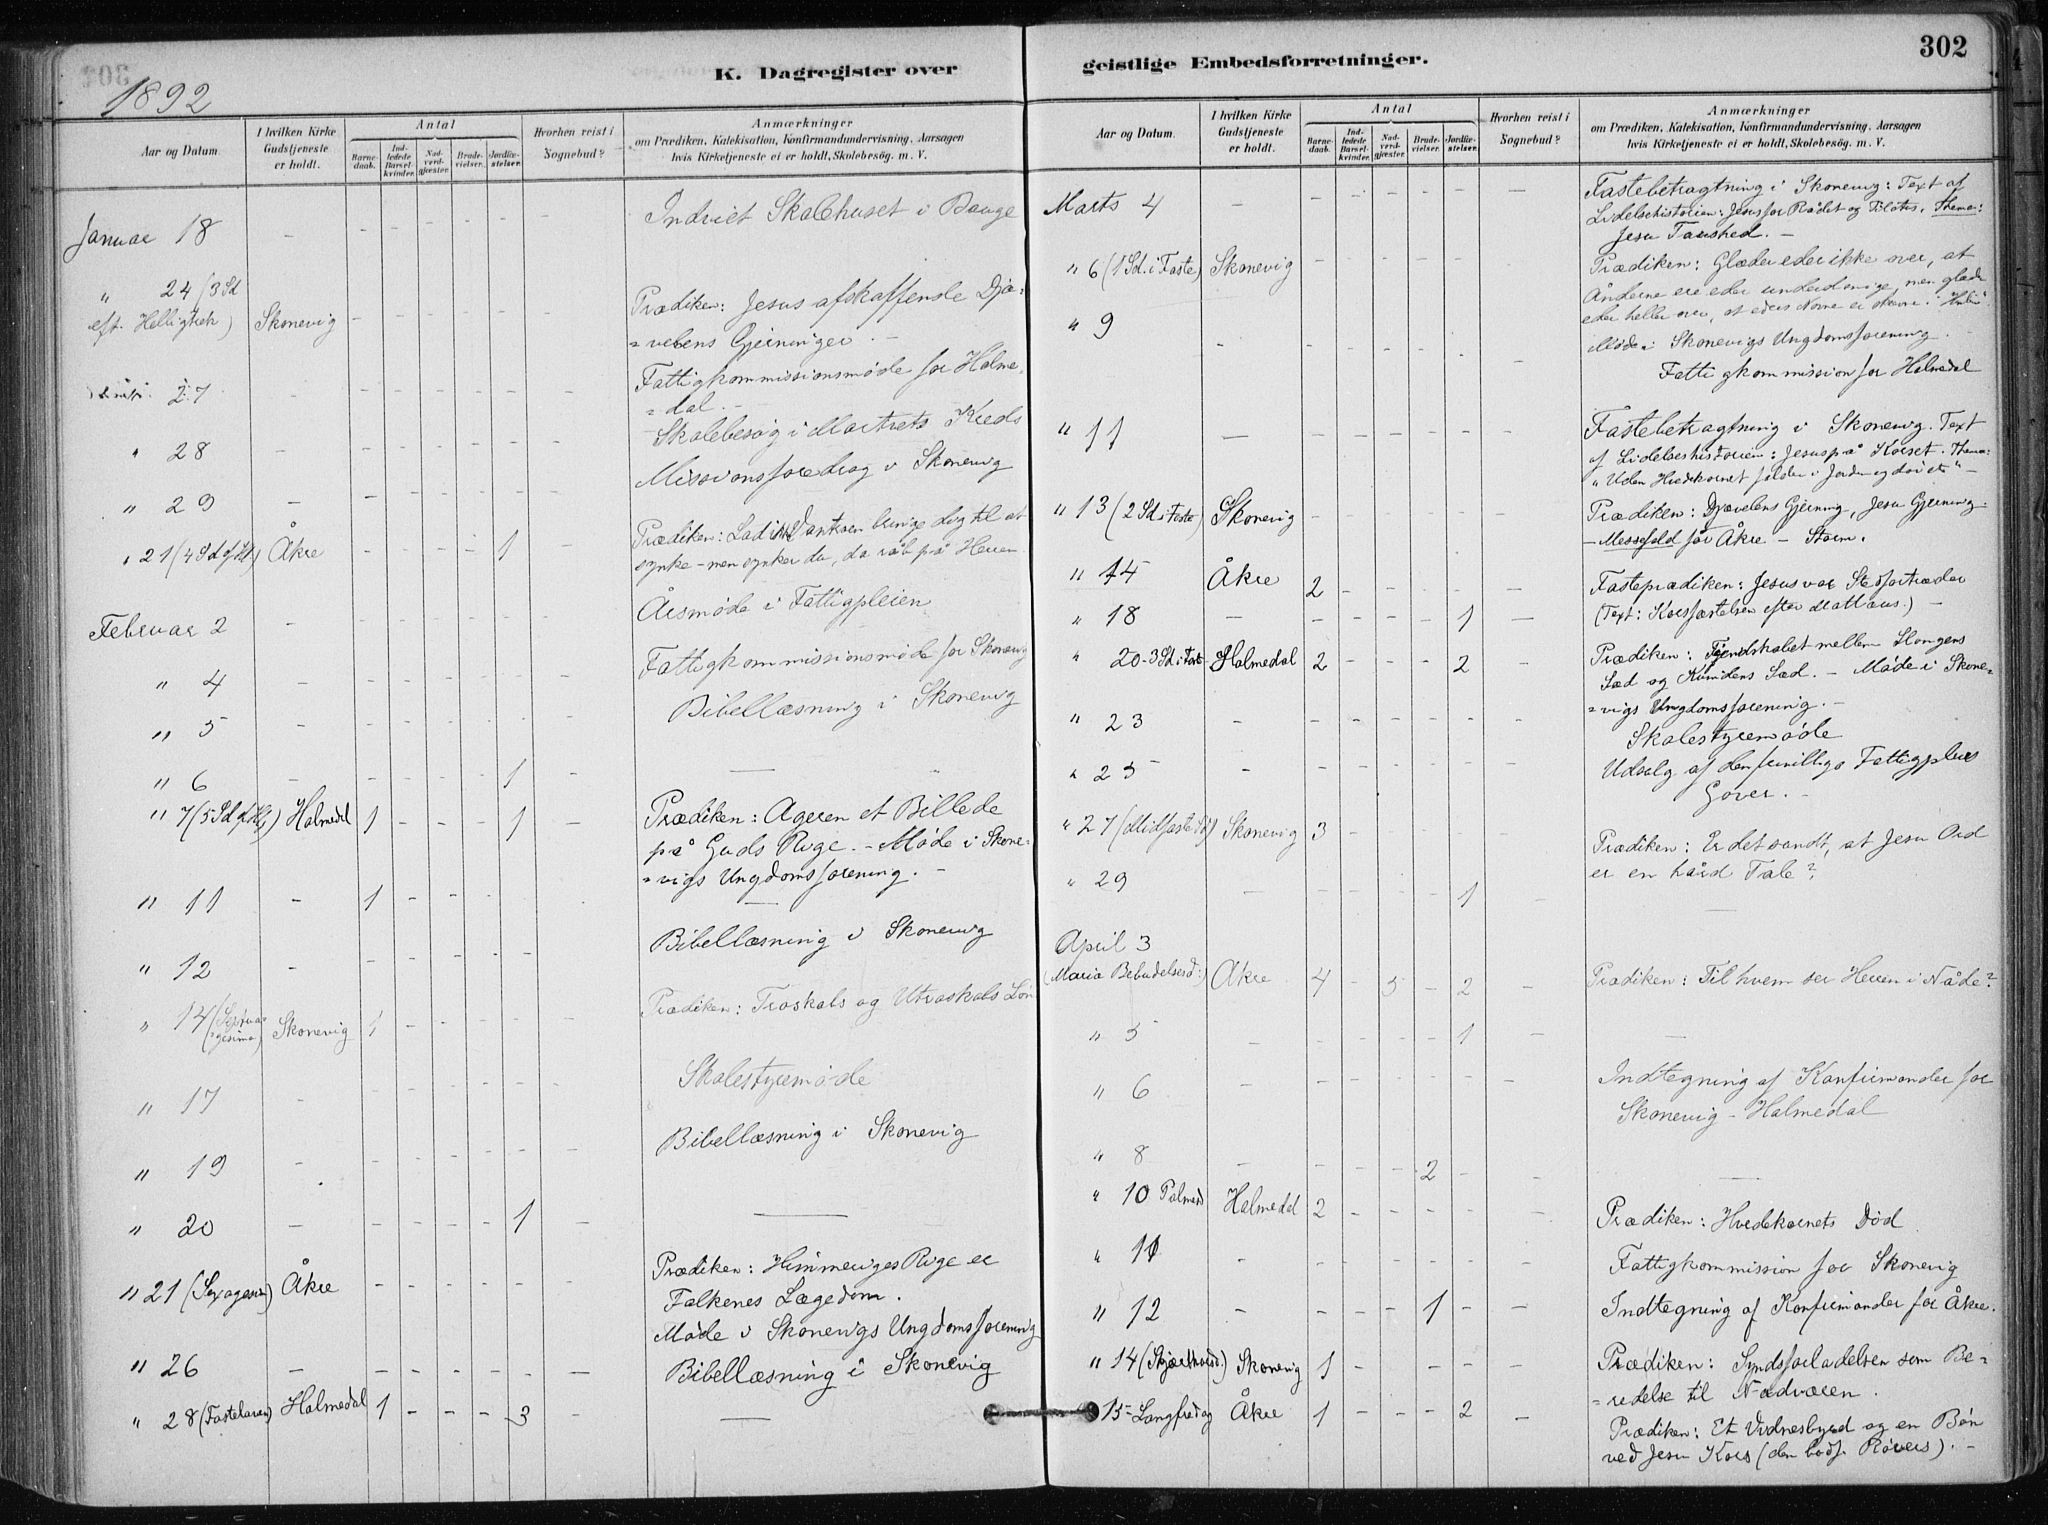 302
K. Dagregister over geistlige Embedsforretninger.
1892
Aar og Datum.
I hvilken Kirke Gudstjeneste er holdt.
Antal
Barnedaab.
Indledede Barselkvinder.
Nadverdgjester.
Brudevielser.
Jordfæstelser.
Hvorhen reist i Sognebud?
Anmærkninger
om Prædiken, Katekisation, Konfirmandundervisning, Aarsagen
hvis Kirketjeneste ei er holdt, Skolebesøg. m. V.
Januar 18 - - - - - - - Indviet Skolehuset i Bauge
" 24 (3 Sd
eft. Helligtrek) Skonevig - - - - - - Prædiken: Jesus afskaffende Djæ=
=velens Gjerninger. -
27 - - - - - - - Fattigkommissionsmøde for Holme=
=dal. -
" 28 - - - - - - - Skolebesøg i Kreds
" 29 - - - - - - - Missionsforedrag i Skonevig
" 21 (4 Sd ) Åkre - - - - 1 - Prædiken: Lad dig til at
synke - men synker du, da råb på Herren
Februar 2 - - - - - - - Årsmøde i Fattigpleien
" 4 - - - - - - - Fattigkommissionsmøde for Skonevig
" 5 - - - - - - - Bibellæsning i Skonevig
" 6 - - - - - 1 - —
" 7 (5 Sd ) Holmedal 1 - - - 1 - Prædiken: Ageren et Billede
på Guds Rige. - Møde i Skone=
=vigs Ungdomsforening. -
" 11 - 1 - - - - - —
" 12 - - - - - - - Bibellæsning i Skonevig
" 14 (Septua=
=gesima) Skonevig 1 - - - - - Prædiken: Troskabs og Utroskabs Løn
" 17 - - - - - - - Skolestyremøde
" 19 - - - - - - - Bibellæsning i Skonevig
" 20 - - - - - 1 - —
" 21 (Sexagesim) Åkre - - - - - - Prædiken: Himmeriges Rige er
Folkenes Lægedom.
Møde i Skonevigs Ungdomsforening
" 26 - - - - - - - Bibellæsning i Skonevig
" 28 (Fastelaven) Holmedal 1 - - - 3 - —
Aar og Datum.
I hvilken Kirke Gudstjeneste er holdt.
Antal
Barnedaab.
Indledede Barselkvinder.
Nadverdgjester.
Brudevielser.
Jordfæstelser.
Hvorhen reist i Sognebud?
Anmærkninger
om Prædiken, Katekisation, Konfirmandundervisning, Aarsagen
hvis Kirketjeneste ei er holdt, Skolebesøg. m. V.
Marts 4 - - - - - - - Fastebetragtning i Skonevig: Text af
Lidelseshistorien: Jesus for Rådet og Pilatus. Thema:
Jesu Taushed. -
" 6 (1 Sd. i Faste) Skonevig - - - - - - Prædiken: Glæder eder ikke over, at
Ånderne ere eder underdanige, men glæder
eder heller over, at eders Navne er skrevne i Himlen
" 9 - - - - - - - Møde i Skonevigs Ungdomsforening
Fattigkommission for Holmedal
" 11 - - - - - - - Fastebetragtning i Skonevig. Text
af Lidelseshistorien: Jesus på Korset. Thema:
"Uden Hvedekornet falder i Jorden og dør etc" -
" 13 (2 Sd i Faste) Skonevig - - - - - - Prædiken: Djævelens Gjerning, Jesu Gjerning
- Messefald for Åkre - Storm.
" 14 Åkre 2 - - - - - Fasteprædiken: Jesus vor Stedfortræder
" 18 - - - - - 1 - (Text: Korsfæstelsen efter Mattæus.) -
" 20 - 3 Sd i Faste Holmedal 2 - - - 2 - Prædiken: Fjendskabet mellem Slangens
Sæd og Kvindens Sæd. - Møde i Skone=
=vigs Ungdomsforening. -
" 23 - - - - - - - Skolestyremøde
" 25 - - - - - - - Udsalg af den frivillige Fattigpleies
Gaver. -
" 27 (Midfaste Sd) Skonevig 3 - - - - - Prædiken: Er det sandt, at Jesu Ord
er en hård Tale?
" 29 - - - - - 1 - —
April 3
(Maria Bebudelsesd:) Åkre 4 - 5 - 2 - Prædiken: Til hvem ser Herren i Nåde?
" 5 - - - - - 1 - —
" 6 - - - - - - - Indtegning af Konfirmander for
Skonevig - Holmedal
" 8 - - - - 2 - - —
" 10 Palmesd Holmedal 2 - - - - - Prædiken: Hvedekornets Død
" 11 - - - - - - - Fattigkommission for Skonevig
" 12 - - - - 1 - - Indtegning af Konfirmander for Åkre.
" 14 (Skjærthorsd.) Skonevig 1 - - - - - Prædiken: Syndsforladelsen som Be=
=redelse til Nadveren.
" 15 - Langfredag Åkre 1 - - - 2 - Prædiken: Et Vidnesbyrd og en Bøn
ved Jesu Kors (den bodf. Røvers). -